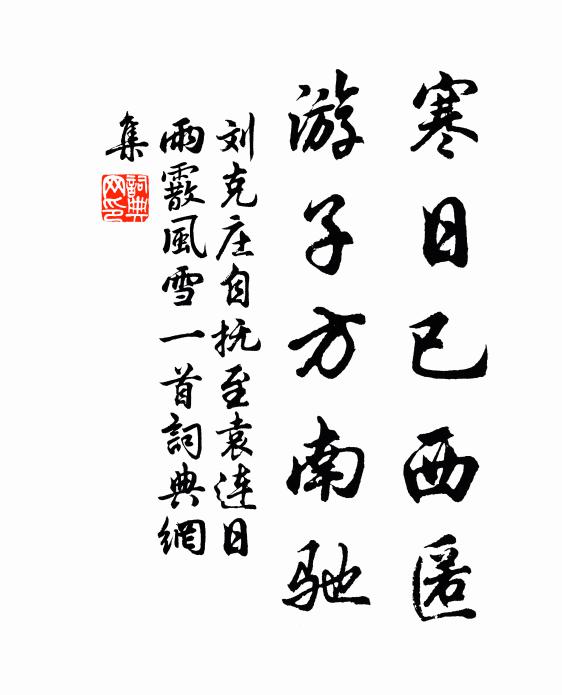 寒日已西匿
游子方南驰
刘克庄自抚至袁连日
雨霰风雪一首詞典網
集
詞典
网印